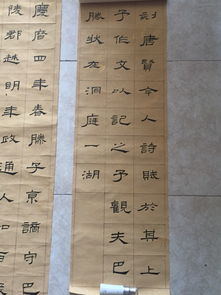 慶曆四年春滕子京謫守巴
陵郡越明年政通人和百
刻唐賢今人詩賦於其上
予作文以記之予觀夫巴
勝狀在洞庭一湖